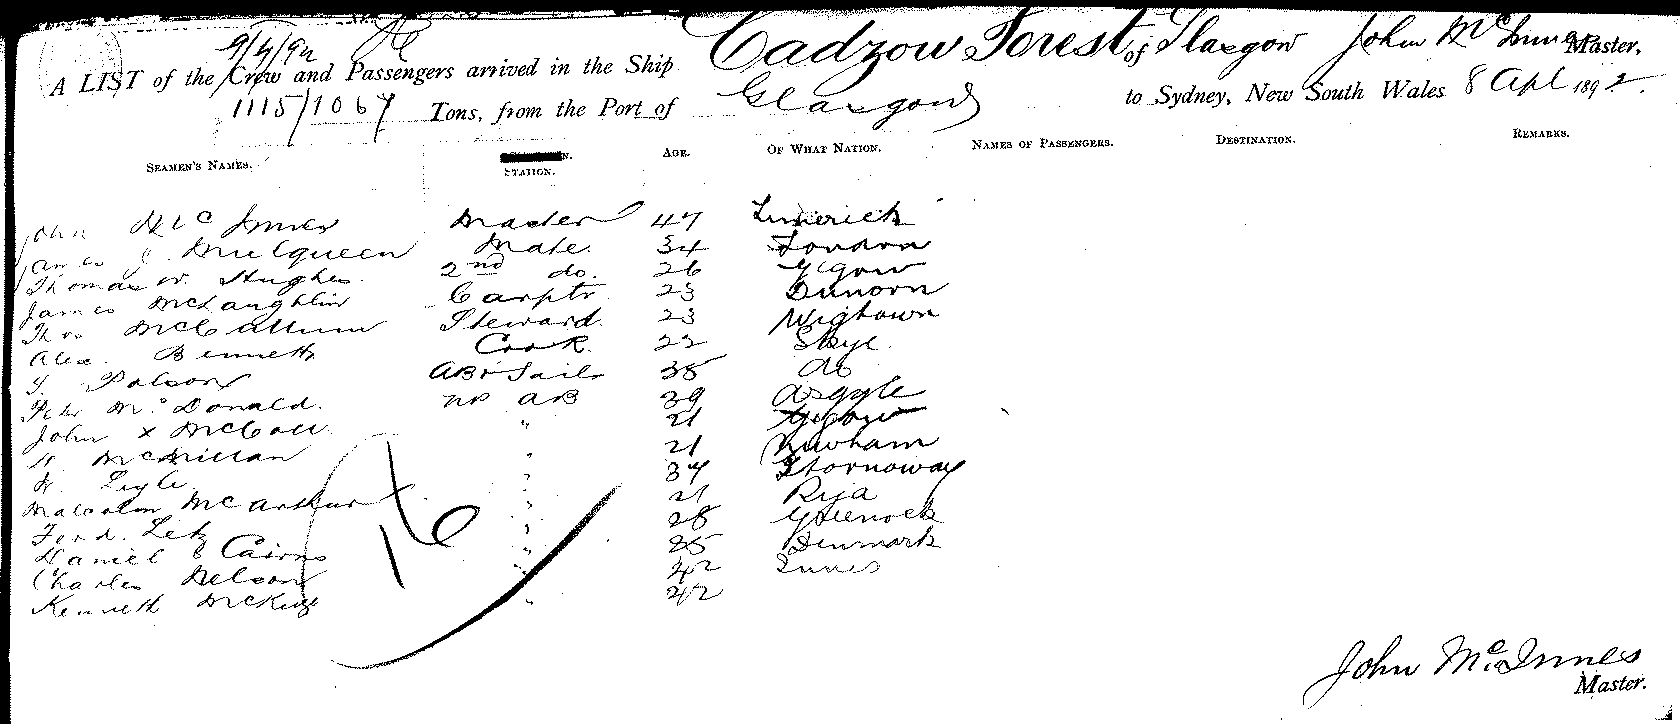 9/4/92
A LIST of the Crew and Passengers arrived in the Ship Cadzow Forest of Glasgow John McInnes Master,
1115/1067 Tons, from the Port of Glasgow to Sydney, New South Wales 8 Apl 1892.
SEAMEN'S NAMES. STATION. AGE. OF WHAT NATION. NAMES OF PASSENGERS. DESTINATION. REMARKS.
John McInnes Master 47 Limerick
James J. Mulqueen Mate. 34 London
Thomas W. Hughes 2nd do. 26 Glgow
James McLaughlin Carptr 23 Dunoon
Thos McCallum Steward. 23 Wigtown
Alex. Bennett Cook. 22 Skye.
Polson AB & Sailr 38 do
Peter McDonald. AB 39 Argyle
John x McColl " 21 Glgow
McMillan " 21 Durham
Lyle " 37 Stornoway
Malcolm McArthur " 21 Riga
Ferd. " 28 Greenock
Daniel Cairns " 25 Denmark
Charles Nelson " 42
Kenneth " 42
16
John McInnes
Master.